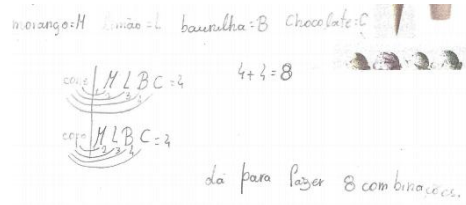 morango=M limão=L baunilha=B Chocolate=C
4+4=8
cone M L B C=4
1 2 3 4
copo M L B C=4
1 2 3 4
dá para fazer 8 combinações.